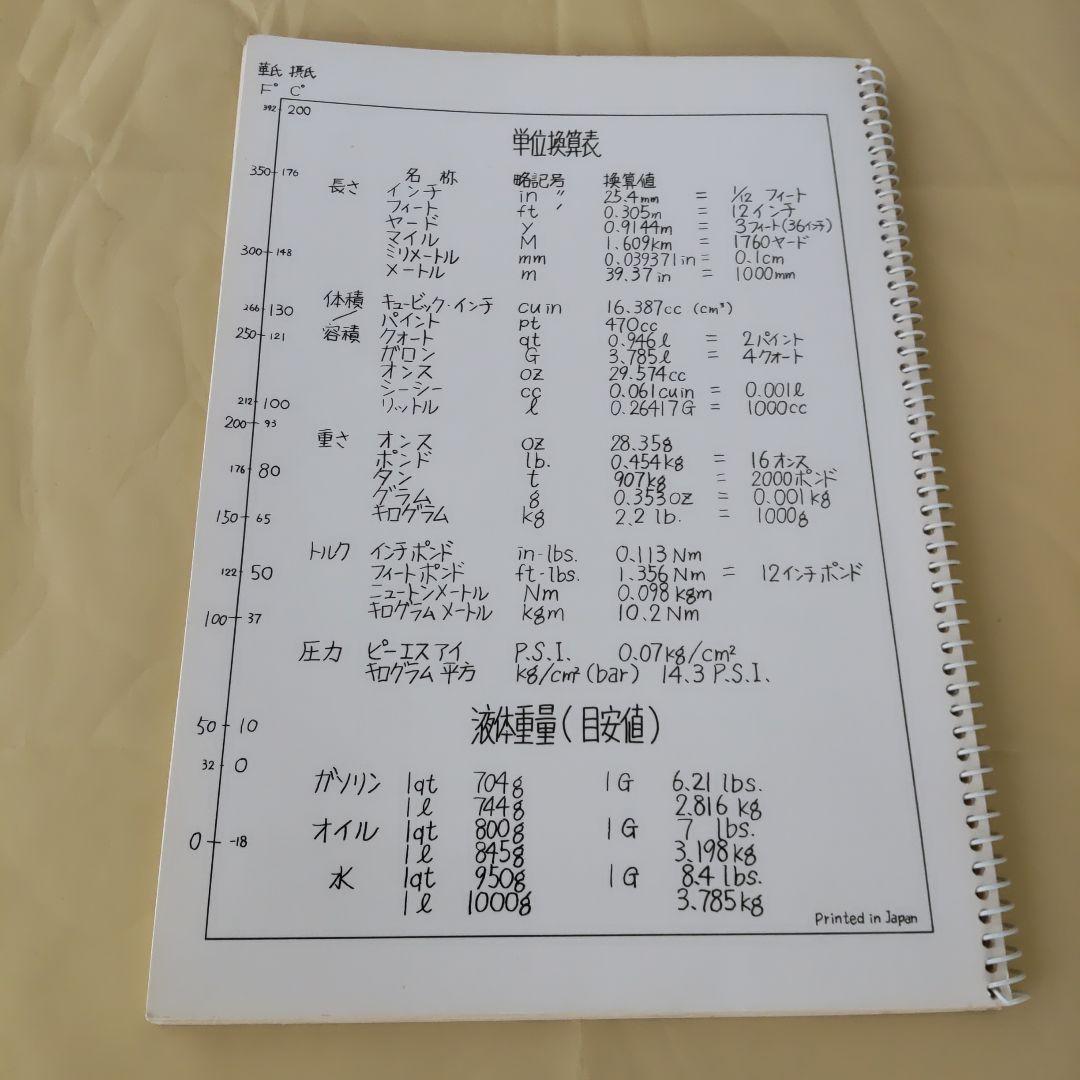 華氏 摂氏
F° C°
392 200
単位換算表
350 176
名 称 略記号 換算値
長さ インチ in 〃 25.4mm = 1/12 フィート
フィート ft ′ 0.305m = 12インチ
ヤード y 0.9144m = 3フィート(36インチ)
マイル M 1.609km = 1760ヤード
300 148
ミリメートル mm 0.039371in = 0.1cm
メートル m 39.37in = 1000mm
266 130
体積 キュービック・インチ cu in 16.387cc (cm³)
／ パイント pt 470cc
250 121
容積 クォート qt 0.946ℓ = 2パイント
ガロン G 3.785ℓ = 4クォート
オンス oz 29.574cc
シーシー cc 0.061cuin = 0.001ℓ
212 100
リットル ℓ 0.26417G = 1000cc
200 93
重さ オンス oz 28.35g
ポンド lb. 0.454kg = 16オンス
176 80
タン t 907kg = 2000ポンド
グラム g 0.353oz = 0.001kg
150 65
キログラム kg 2.2 lb. = 1000g
トルク インチポンド in-lbs. 0.113Nm
122 50
フィートポンド ft-lbs. 1.356Nm = 12インチポンド
ニュートンメートル Nm 0.098kgm
100 37
キログラムメートル kgm 10.2Nm
圧力 ピーエスアイ P.S.I. 0.07kg/cm²
キログラム平方 kg/cm²(bar) 14.3 P.S.I.
50 10
液体重量(目安値)
32 0
ガソリン 1qt 704g 1G 6.21 lbs.
1ℓ 744g 2.816 kg
オイル 1qt 800g 1G 7 lbs.
0 -18
1ℓ 845g 3.198kg
水 1qt 950g 1G 8.4 lbs.
1ℓ 1000g 3.785kg
Printed in Japan